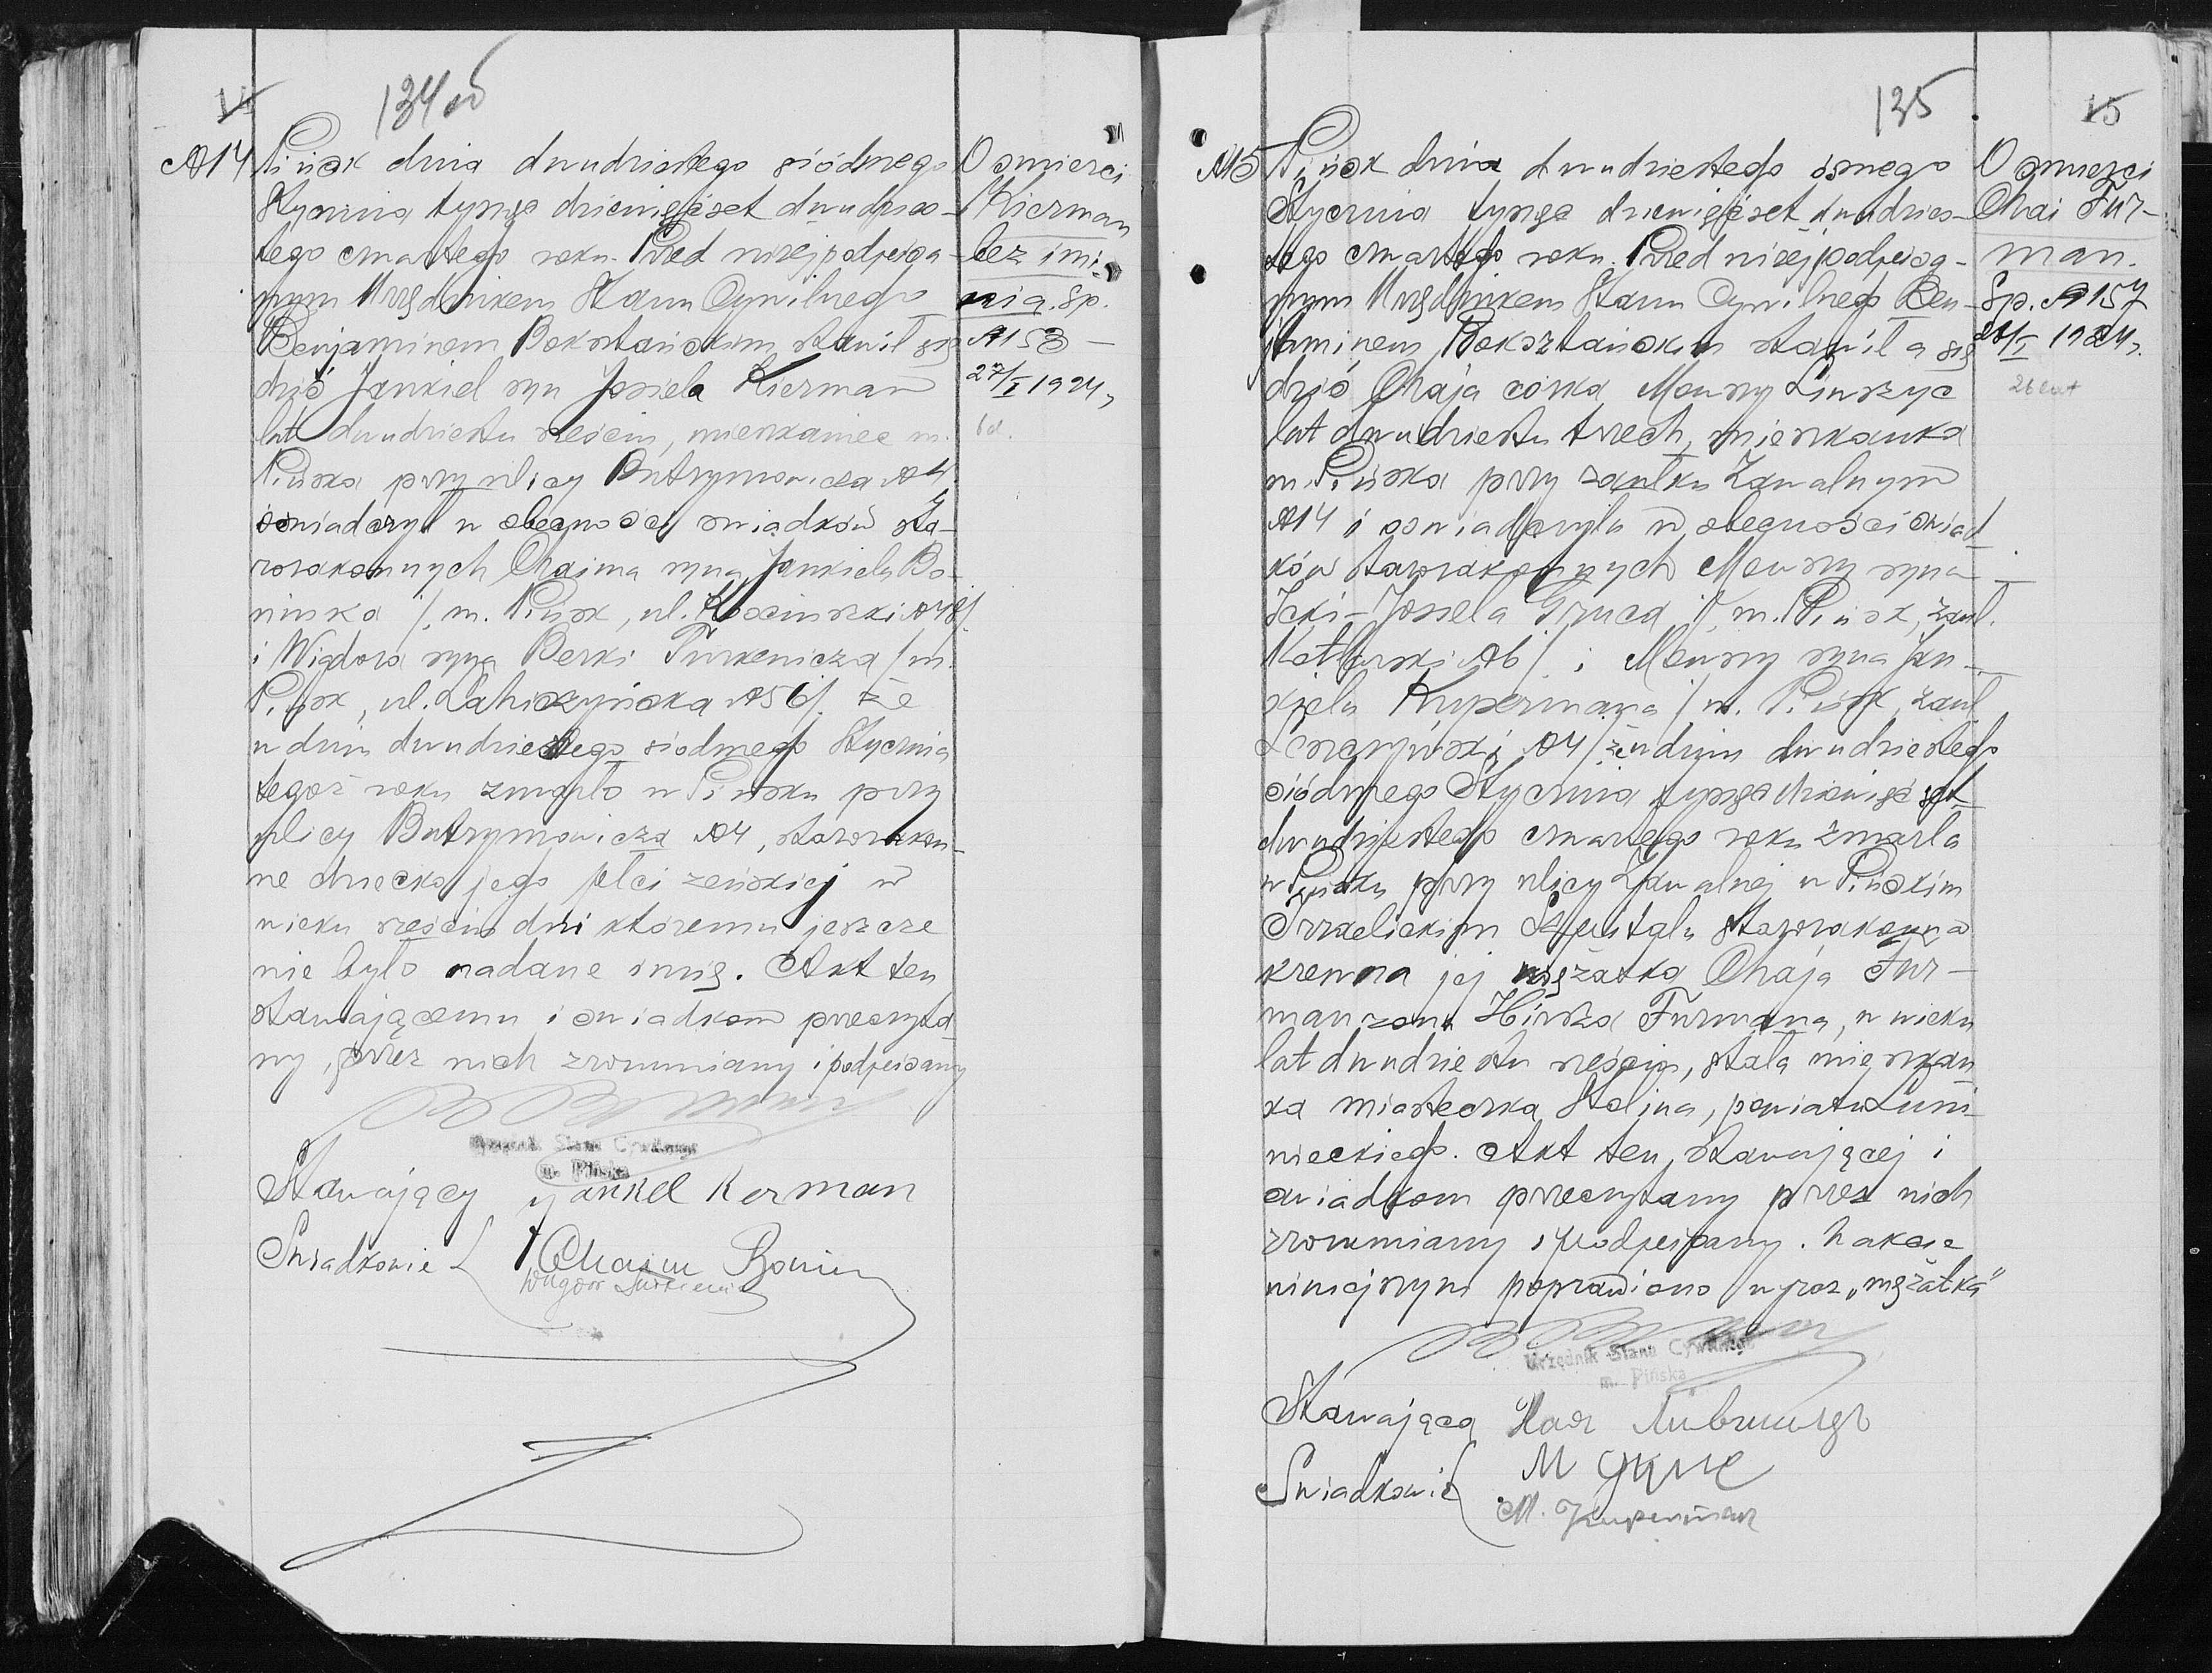 14
134 od
№14
Pińsk dnia dwudziestego siódmego
Stycznia tysiąc dziewięćset dwudzies-
tego czwartego roku. Przed niżej podpisa-
nym Urzędnikem Stanu Cywilnego
Benjaminem Boksztańskim stawił się
dziś Jankiel syn Josiela Kierman
lat dwudziestu sześciu, mieszkaniec m.
Pińska przy ulicy Butrymowicza №4
oświadczył w obecności swiadków sta-
rozakonnych Chaima syna Jankiela Bo-
ninska /m. Pińsk, ul. Kościuszki №78/
i Wigdora syna Berki Turkenicza /m.
Pińsk, ul. Łahiszyńska №56/ że
w dniu dwudziestego siodmego Stycznia
tegoż roku zmarło w Pinsku przy
ulicy Butrymowicza №4, starozakon-
ne dziecko jego płci zeńskiej w
wieku sześciu dni któremu jeszcze
nie było nadane imię. Akt ten
stawającemu i swiadkom przeczyta
ny, przez nich zrozumiany i podpisany
Urzędnik Stanu Cywilnego
m. Pińska
Stawający Yankel Kerman
Swiadkowie Chaim Bonin
Wugdor
O smierci
Kierman
bez imi
nia. Sp.
№153 -
27/I 1924 r
6 d.
135
15
№15
Pińsk dnia dwudziestego ósmego
Stycznia tysiąc dziewięćset dwudzies-
tego czwartego roku. Przed niżej podpisa-
nym Urzędnikem Stanu Cywilnego Ben-
jaminem Boksztańskim stawiła się
dziś Chaja córka Mowszy Liwszyc
lat dwudziestu trzech, mieszkanka
m. Pińska przy zaułku Zawalnym
№14 i oswiadczyła w obecności świad-
ków starozakonnych Mowszy syna
Icki-Josela Gruca /m. Pińsk, zauł.
Kotlarski №6/ i Mowszy syna Jan-
kiela Kupermana /m. Pińsk, zauł
Leszczyński №4/ że w dniu dwudziestego
siódmego Stycznia tysiąc dziewięćset
dwudziestego czwartego roku zmarła
w Pińsku przy ulicy Zawalnej w Pińskim
Izraelickim Szpitalu starozakonna
krewna jej mężatka Chaja Fur-
man żona Hirsza Furmana, w wieku
lat dwudziestu sześciu, stała mieszkan
ka miasteczka Stolina, powiatu Łuni-
nieckiego. Akt ten, stawającej i
swiadkom przeczytany przez nich
zrozumiany i podpisany. W akcie
niniejszym poprawiono wyraz „mężatka"
Urzędnik Stanu Cywilnego
m. Pińska
Stawająca
Swiadkowie
M. Kuperman
O smierci
Chai Fur-
man.
Sp. №157
28/I 1924 r.
26 lat